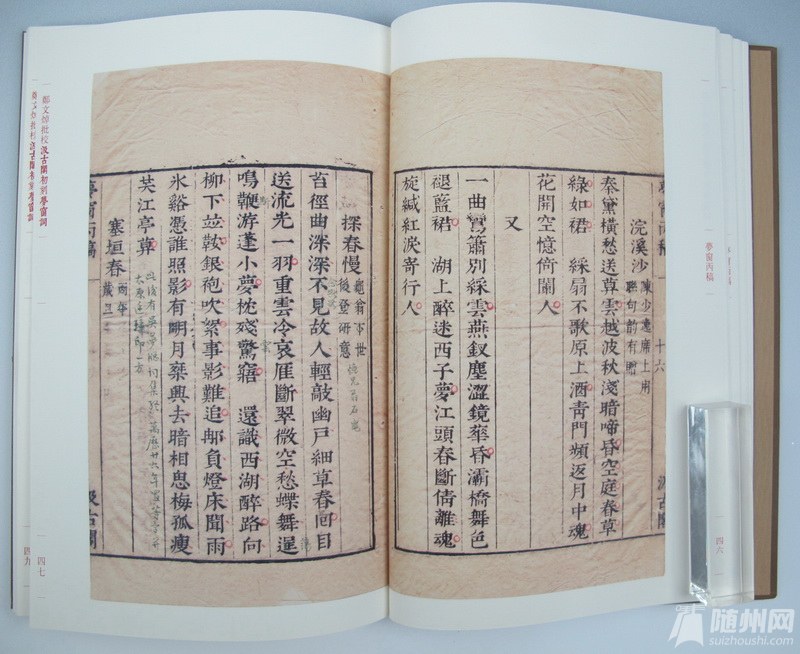 夢窗丙稿
浣溪沙 陳少逸席上用聯句韵有贈 十六
秦黛橫愁送暮雲越波秋淺暗啼昏空庭春草
綠如裙 綵扇不歌原上酒青門頻返月中魂
花開空憶倚闌人
又
一曲鸞簫別綵雲燕釵塵澀鏡華昏灞橋舞色
褪藍裙 湖上醉迷西子夢江頭春斷倩離魂
旋緘紅淚寄行人
四六
探春慢 龜翁下世後登研意
苔徑曲深深不見故人輕敲幽戶細草春回目
送流光一羽重雲冷哀雁斷翠微空愁蝶舞逞
鳴鞭游蓬小夢枕殘驚寤 還識西湖醉路向
柳下並鞍銀袍吹絮事影難追那負燈床聞雨
氷谿憑誰照影有明月乗興去暗相思梅孤瘦
共江亭莫
塞垣春 丙午歲旦
夢窗丙稿
汲古閣
鄭文焯批校汲古閣初刻夢窗詞
四七
鄭文焯批校汲古閣初刻夢窗詞
四九
随州网
suizhoushi.com